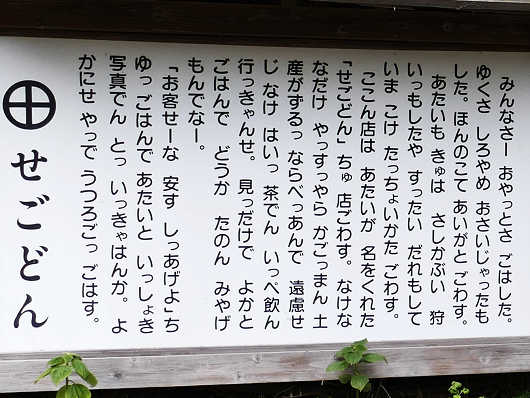 みんなさー おやっとさ ごはした。
ゆくさ しろやめ おさいじゃったも
した。ほんのこて あいがと ごわす。
あたいも きゅは さしかぶい 狩
いっもしたや すったい だれもして
いま こけ たっちょいかた ごわす。
ここん店は あたいが 名をくれた
「せごどん」ちゅ 店ごわす。なけな
なだけ やっすっやら かごっまん 土
産がずるっ ならべっあんで 遠慮せ
じ なけ はいっ 茶でん いっぺ飲ん
行っきゃんせ。見っだけで よかと
ごはんで どうか たのん みやげ
もんでなー。
「お客せーな 安す しっあげよ」ち
ゆっ ごはんで あたいと いっしょき
写真でん とっ いっきゃはんか。よ
かにせ やっで うつろごっ ごはす。
せごどん